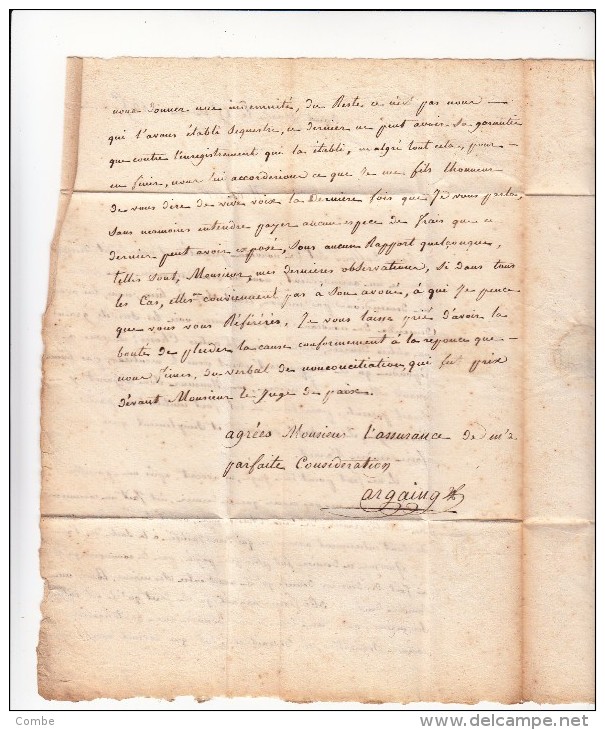 nous donner une indemnité, du Reste ce n'est pas nous —
qui l'avons établi Sequestre, ce dernier ne peut avoir Sa garantie
que contre l'enregistrement qui la établi, malgré tout cela, pour —
en finir, nous lui accorderions ce que Je me fils lhonneur
de vous dire de vive voix la Derniere fois que Je vous parla,
sans nenmoins entendre payer aucun espece de frais que ce
dernier peut avoir exposé, sous aucun Rapport quelconque,
telles sont, Monsieur, mes dernieres observations, si dans tous
les Cas, elles conviennent pas à Son avoué, à qui Je pence
que vous vous Référérés, Je vous laisse prié d'avoir la
bonté de pleider la cause conformement à la reponce que —
nous fimes, du verbal de nonconciliation, qui fut prix
dévant Monsieur le Juge de paix.
agréés Monsieur l'assurance de m'a
parfaite Consideration
argaing
Combe
www.delcampe.net